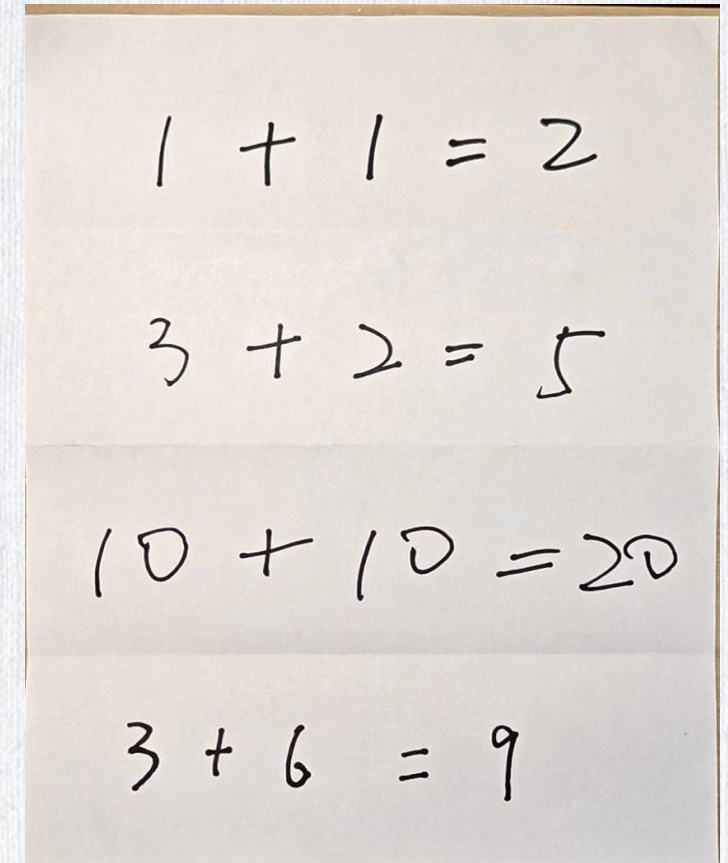 1 + 1 = 2
3 + 2 = 5
10 + 10 = 20
3 + 6 = 9